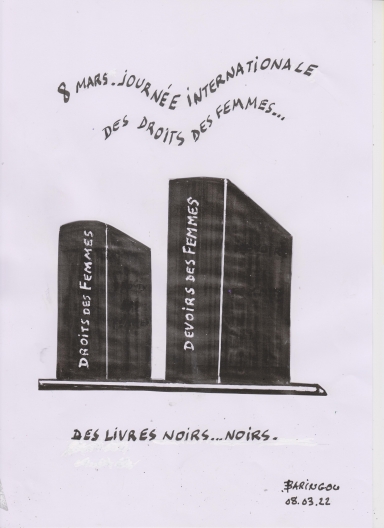 8 MARS..JOURNÉE INTERNATIONALE
DES DROITS DES FEMMES...
DROITS DES FEMMES
DEVOIRS DES FEMMES
DES LIVRES NOIRS...NOIRS.
BARINGOU
08.03.22